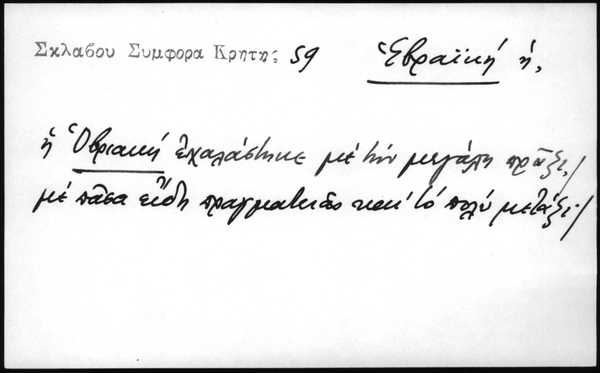 Σκλαβου Συμφορα Κρητης 59 Ἑβραϊκή ἡ,
ἡ Ὁβριακή ἐχαλάστηκε μέ τήν μεγάλη πρᾶξι,/
μέ πᾶσα εἴδη πραγματειᾶς καί τό πολύ μετάξι·/